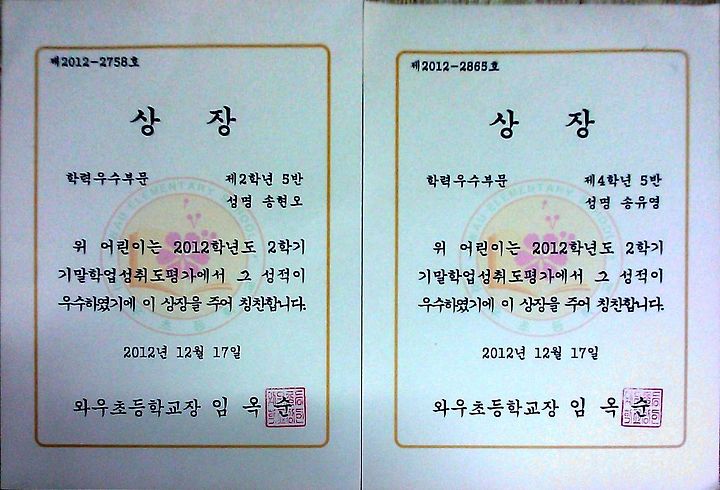 제2012-2758호
상 장
학력우수부문 제2학년 5반
성명 송현오
위 어린이는 2012학년도 2학기
기말학업성취도평가에서 그 성적이
우수하였기에 이 상장을 주어 칭찬합니다.
2012년 12월 17일
와우초등학교장 임 옥 순
제2012-2865호
상 장
학력우수부문 제4학년 5반
성명 송유영
위 어린이는 2012학년도 2학기
기말학업성취도평가에서 그 성적이
우수하였기에 이 상장을 주어 칭찬합니다.
2012년 12월 17일
와우초등학교장 임 옥 순